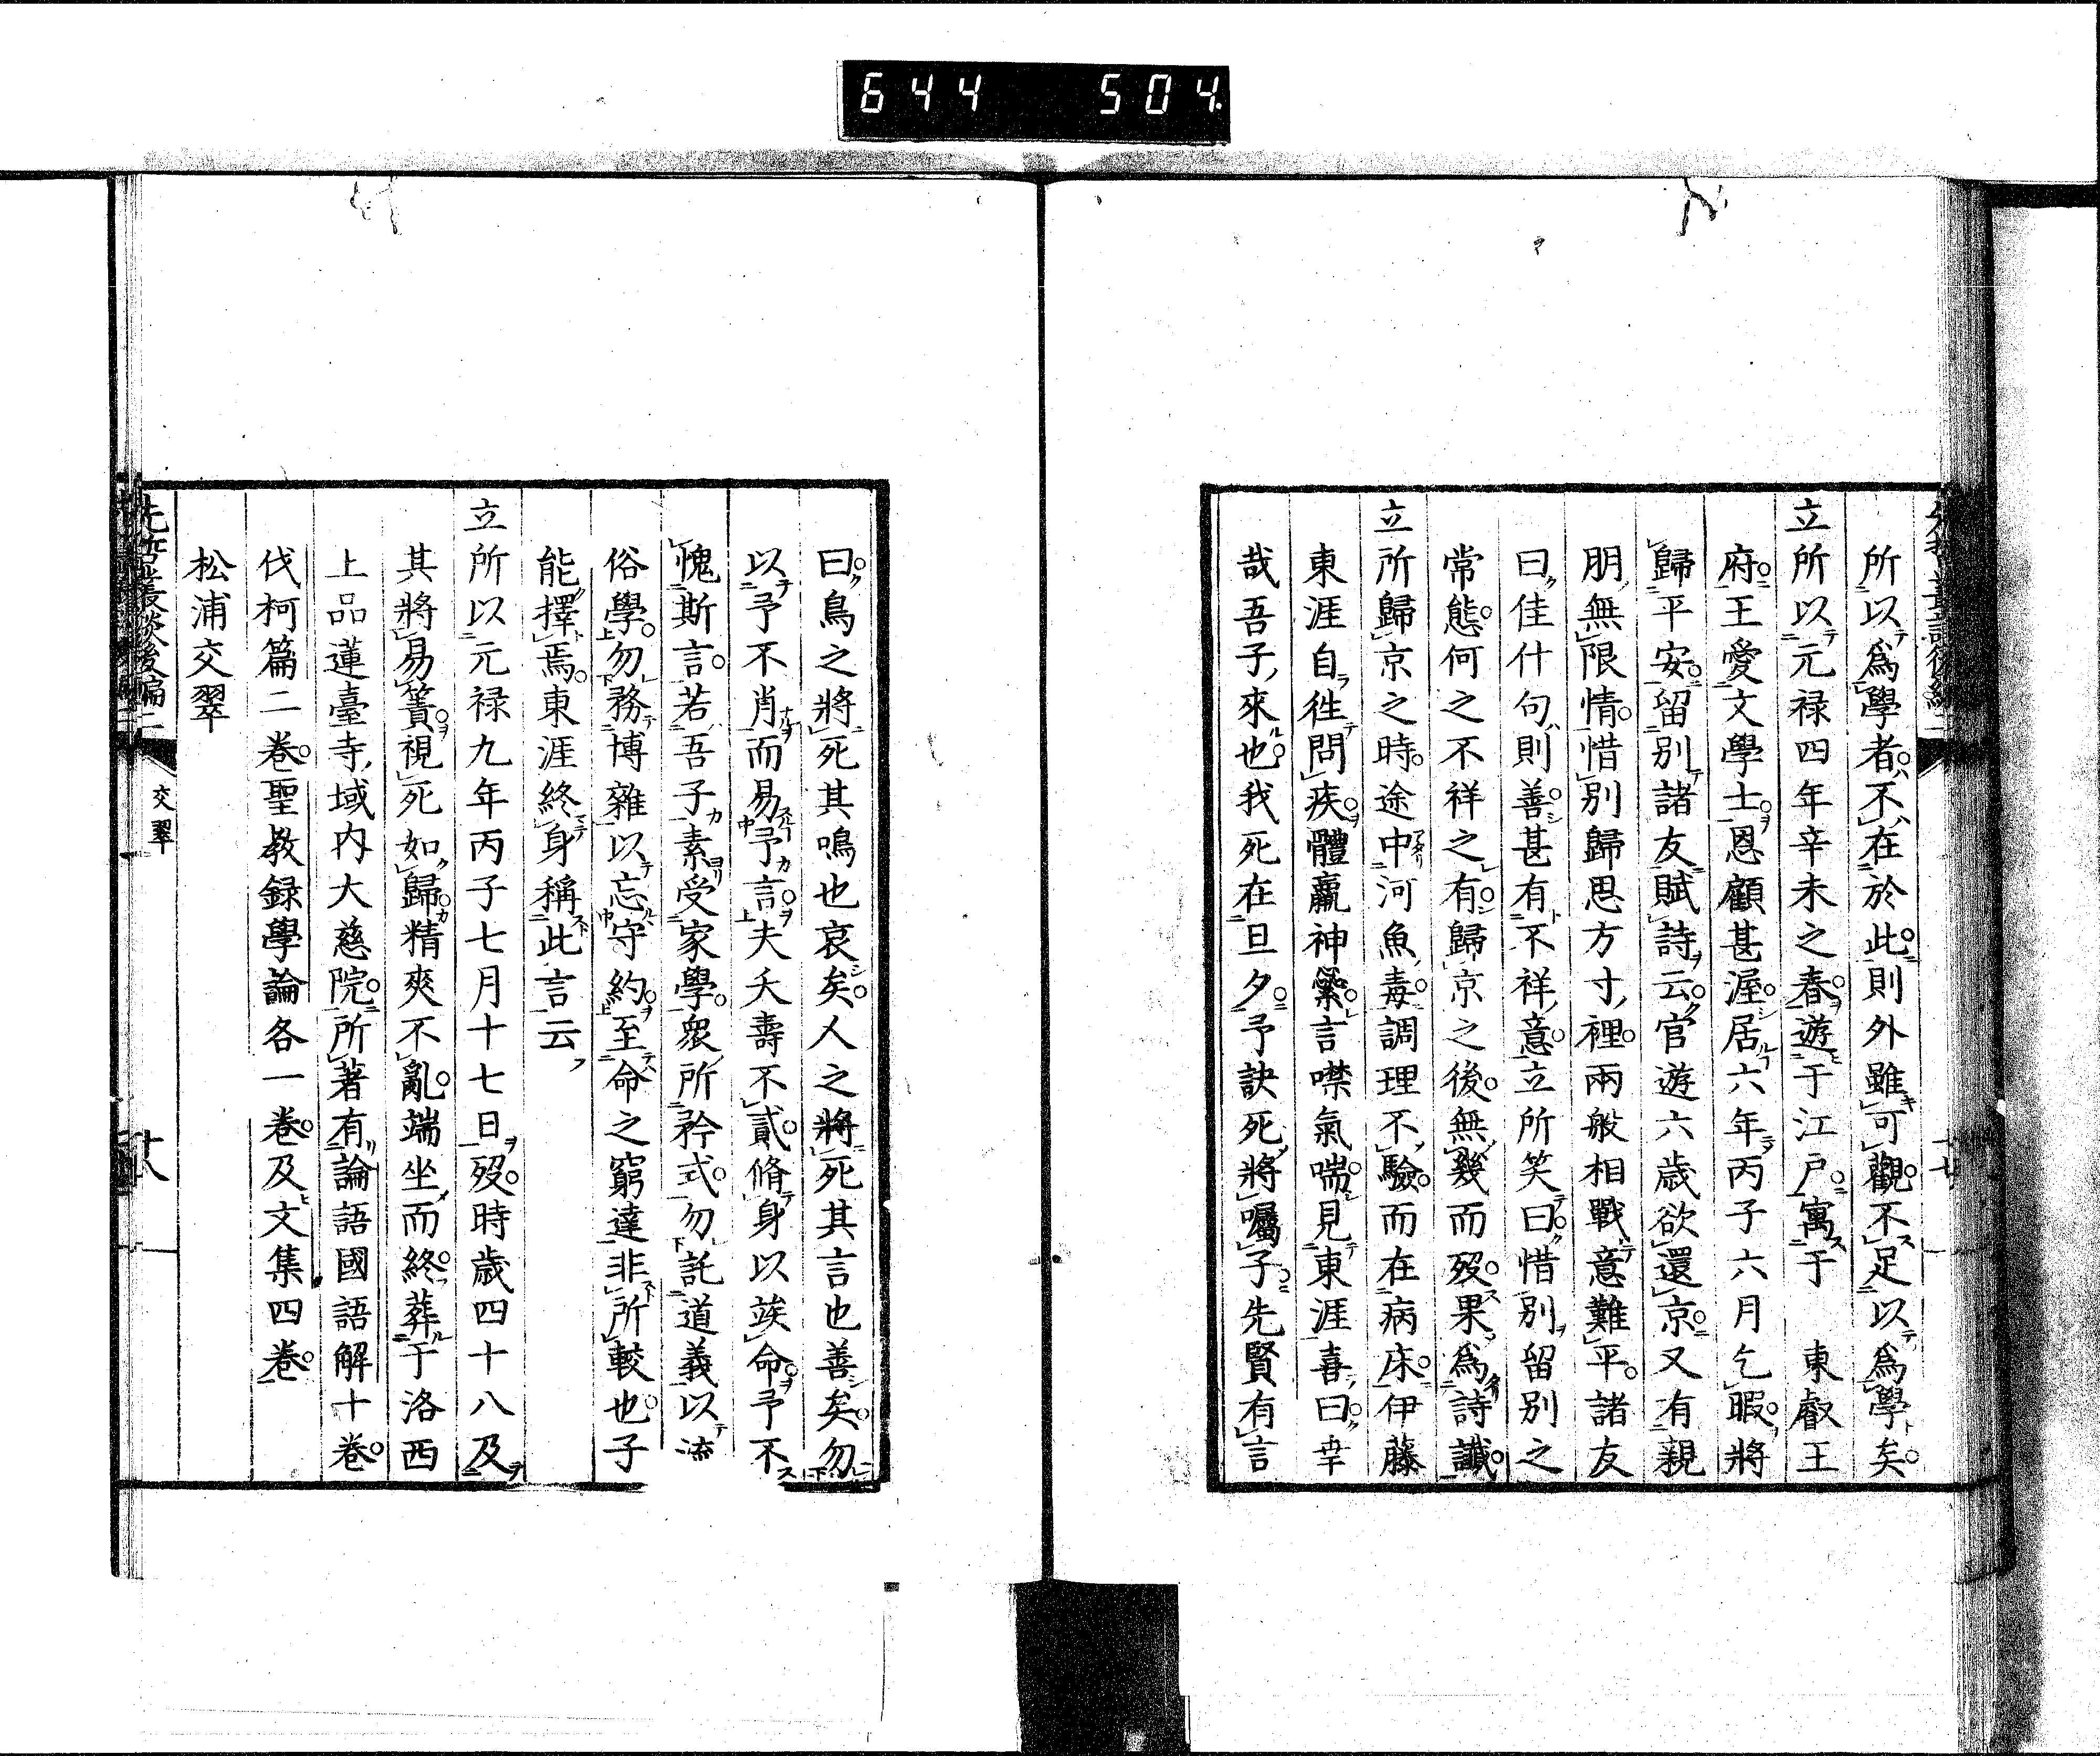 644 504
所以爲學者不在於此則外雖可觀不足以爲學矣
立所以元禄四年辛未之春遊于江戸寓于 東叡王
府王愛文學士恩顧甚渥居六年丙子六月乞暇將
歸平安留別諸友賦詩云官遊六歳欲還京又有親
朋無限情惜別歸思方寸裡兩般相戰意難平諸友
曰佳什句則善甚有不祥意立所笑曰惜別留別之
常態何之不祥之有歸京之後無幾而歿果爲詩讖
立所歸京之時途中河魚毒調理不驗而在病床伊藤
東涯自徃問疾體羸神縈言噤氣喘見東涯喜曰幸
哉吾子來也我死在旦夕予訣死將囑子先賢有言
曰鳥之將死其鳴也哀矣人之將死其言也善矣勿
以予不肖而易予言夫夭壽不貳脩身以竢命予不
愧斯言若吾子素受家學衆所矜式勿託道義以流
俗學勿務博雜以忘守約至命之窮達非所較也子
能擇焉東涯終身稱此言云
立所以元禄九年丙子七月十七日歿時歳四十八及
其將易簀視死如歸精爽不亂端坐而終葬于洛西
上品蓮臺寺域内大慈院所著有論語國語解十卷
伐柯篇二卷聖教録學論各一卷及文集四卷
松浦交翠
先哲叢談後編二
交翠
十八